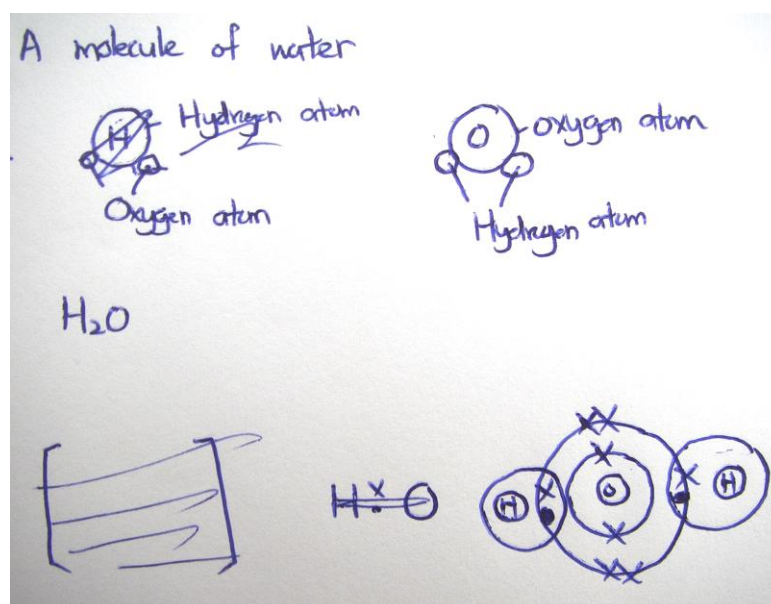 A molecule of water
H Hydrogen atom
Oxygen atom
O oxygen atom
Hydrogen atom
H₂O
H O
H O H